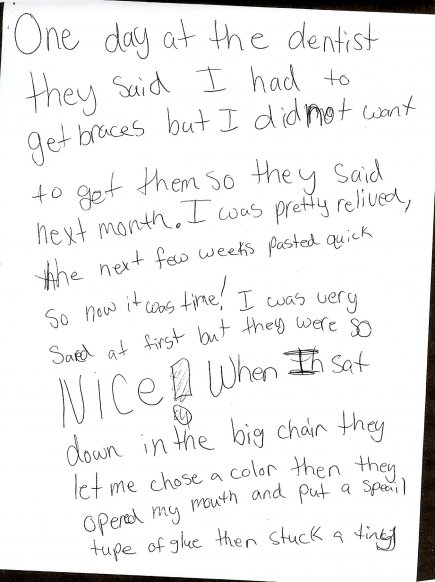 One day at the dentist
they said I had to
get braces but I did not want
to get them so they said
next month. I was pretty relived,
the next few weeks pasted quick
so now it was time! I was very
Sared at first but they were so
NICE! When I sat
down in the big chair they
let me chose a color then they
opened my mouth and put a speail
tupe of glue then stuck a tiny